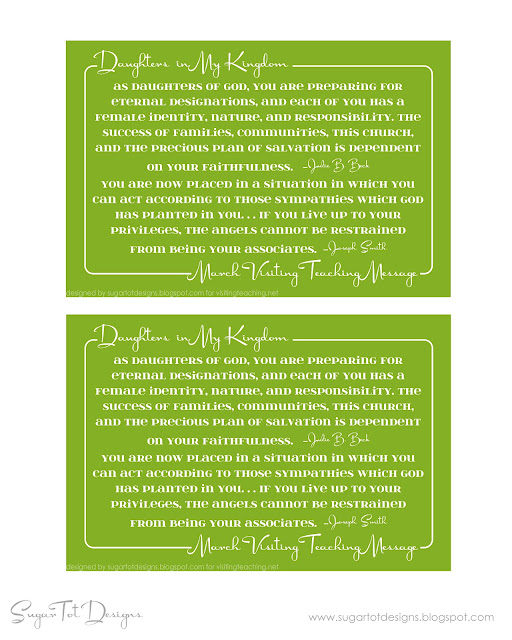 Daughters in My Kingdom
as daughters of God, you are preparing for
eternal designations, and each of you has a
female identity, nature, and responsibility. The
success of families, communities, this church,
and the precious plan of salvation is dependent
on your faithfulness. -Julie B. Beck
you are now placed in a situation in which you
can act according to those sympathies which God
has planted in you. . . If you live up to your
privileges, the angels cannot be restrained
from being your associates. -Joseph Smith
March Visiting Teaching Message
designed by sugartotdesigns.blogspot.com for visitingteaching.net
Daughters in My Kingdom
as daughters of God, you are preparing for
eternal designations, and each of you has a
female identity, nature, and responsibility. The
success of families, communities, this church,
and the precious plan of salvation is dependent
on your faithfulness. -Julie B. Beck
you are now placed in a situation in which you
can act according to those sympathies which God
has planted in you. . . If you live up to your
privileges, the angels cannot be restrained
from being your associates. -Joseph Smith
March Visiting Teaching Message
designed by sugartotdesigns.blogspot.com for visitingteaching.net
SugarTotDesigns
www.sugartotdesigns.blogspot.com